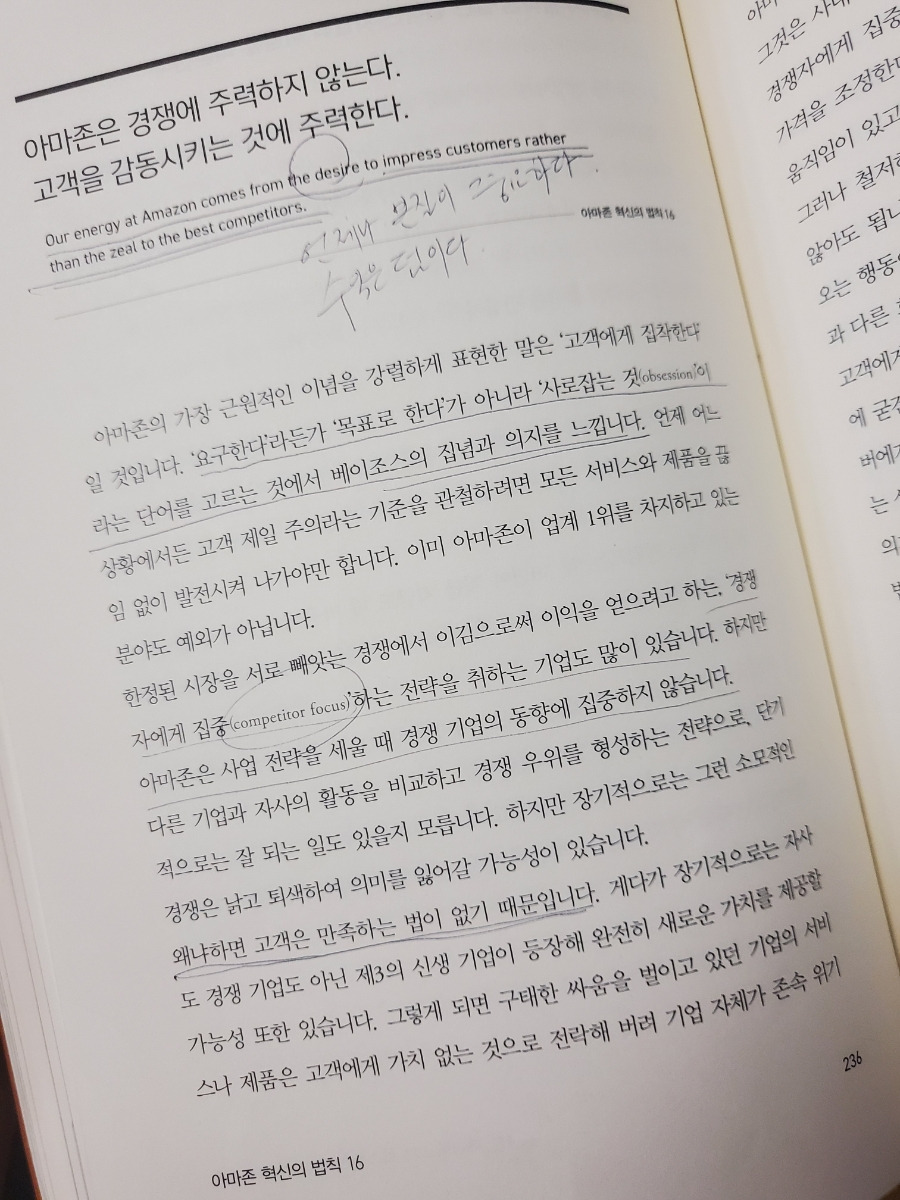 아마존은 경쟁에 주력하지 않는다.
고객을 감동시키는 것에 주력한다.
Our energy at Amazon comes from the desire to impress customers rather
than the zeal to the best competitors.
언제나 본질이 중요하다.
수익은 덤이다.
아마존 혁신의 법칙 16
아마존의 가장 근원적인 이념을 강렬하게 표현한 말은 ‘고객에게 집착한다’
일 것입니다. ‘요구한다’라든가 ‘목표로 한다’가 아니라 ‘사로잡는 것(obsession)’이
라는 단어를 고르는 것에서 베이조스의 집념과 의지를 느낍니다. 언제 어느
상황에서든 고객 제일 주의라는 기준을 관철하려면 모든 서비스와 제품을 끊
임 없이 발전시켜 나가야만 합니다. 이미 아마존이 업계 1위를 차지하고 있는
분야도 예외가 아닙니다.
한정된 시장을 서로 빼앗는 경쟁에서 이김으로써 이익을 얻으려고 하는, ‘경쟁
자에게 집중(competitor focus)’하는 전략을 취하는 기업도 많이 있습니다. 하지만
아마존은 사업 전략을 세울 때 경쟁 기업의 동향에 집중하지 않습니다.
다른 기업과 자사의 활동을 비교하고 경쟁 우위를 형성하는 전략으로, 단기
적으로는 잘 되는 일도 있을지 모릅니다. 하지만 장기적으로는 그런 소모적인
경쟁은 낡고 퇴색하여 의미를 잃어갈 가능성이 있습니다.
왜냐하면 고객은 만족하는 법이 없기 때문입니다. 게다가 장기적으로는 자사
도 경쟁 기업도 아닌 제3의 신생 기업이 등장해 완전히 새로운 가치를 제공할
가능성 또한 있습니다. 그렇게 되면 구태한 싸움을 벌이고 있던 기업의 서비
스나 제품은 고객에게 가치 없는 것으로 전락해 버려 기업 자체가 존속 위기
236
아마존 혁신의 법칙 16
그것은 사내
경쟁자에게 집중
가격을 조정한다
움직임이 있고
그러나 철저히
않아도 됩니
오는 행동이
과 다른
고객에게
에 굳건
버에게
는
의